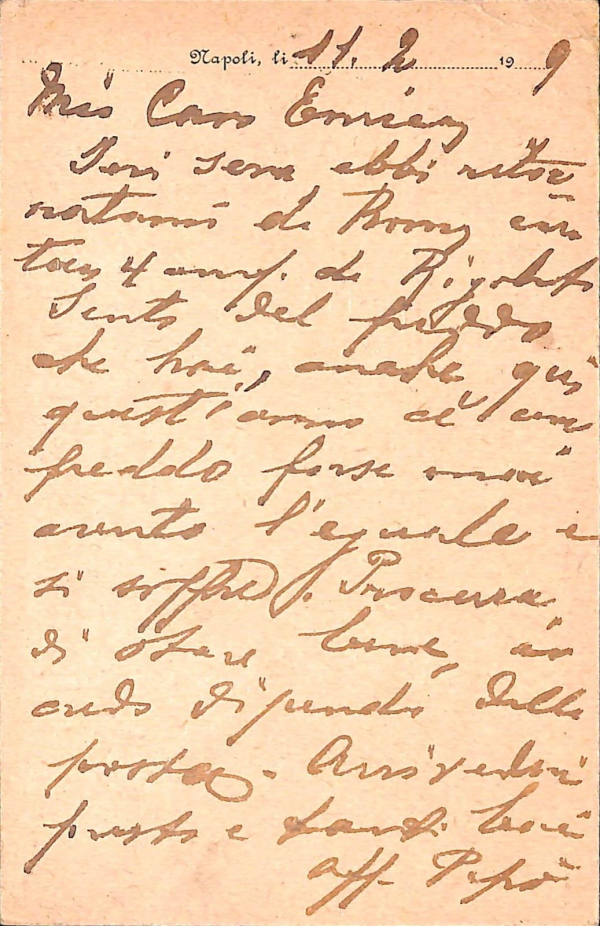 Napoli, li 11. 2 19 9
Mio Caro Enrico
Ieri sera ebbi
di Roma
4 di Rigoletto
Sento del freddo
che hai, anche qui
quest'anno c'è un
freddo forse mai
avuto l'eguale e
si soffre. Procura
di stare bene, io
credo dipenda dalla
posta. Arrivederci
presto e tanti baci
aff. Pepè